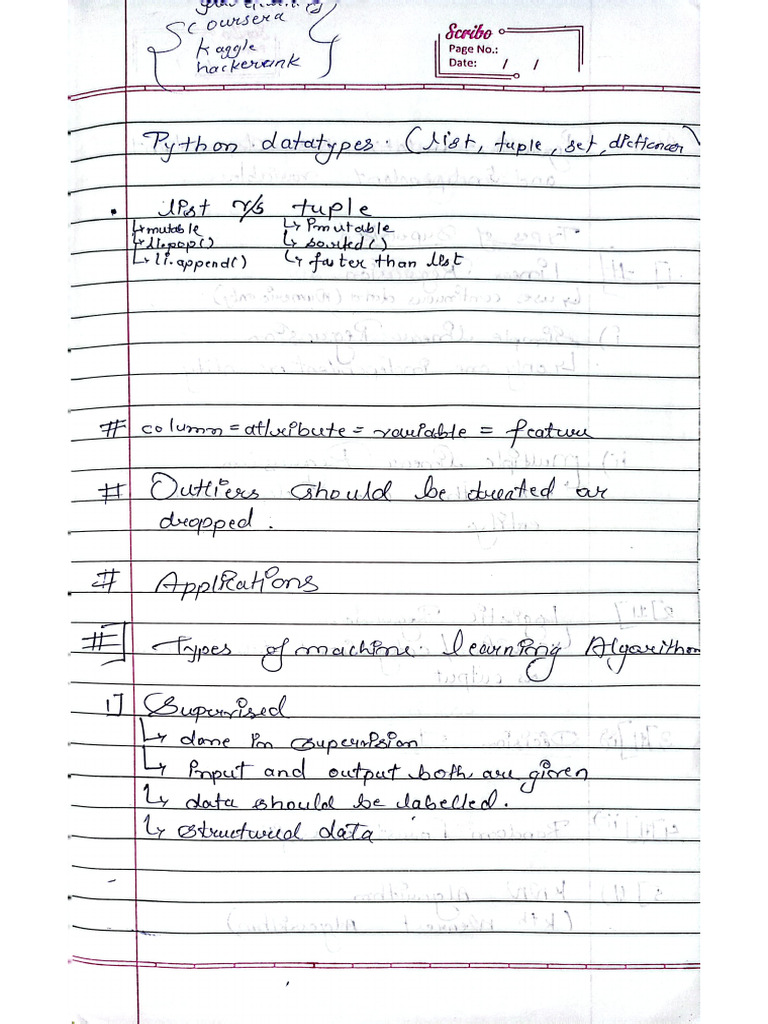 coursera
Kaggle
hackerrank
Scribo
Page No.:
Date: / /
Python datatypes. (list, tuple, set, dictionar)
. list v/s tuple
↳ mutable ↳ Imutable
↳ li.pop() ↳ sorted()
↳ li.append() ↳ faster than list
# column = attribute = variable = feature
# Outliers should be treated or
dropped.
# Applications
# Types of machine learning Algorithm
1] Supervised
↳ done in supervision
↳ input and output both are given
↳ data should be labelled.
↳ structured data